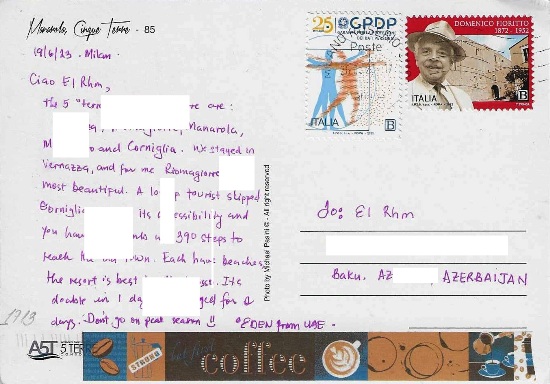 Manarola, Cinque Terre - 85
19/6/23 - Milan
Ciao El Rhm,
the 5 "terre are:
Manarola,
and Corniglia. We stayed in
Vernazza, and for me Riomaggiore
most beautiful. A tourist skipped
Corniglia its accessibility and
you have 390 steps to
reach town. Each have beaches
the resort is best Its
doable in 1 day for 2
days. Don't go on peak season !!
"EDEN from UAE"
1713
AST 5 TERRE
Photo by Michele Pasini © - All right reserved
25
GPDP
Poste
ITALIA
B
DOMENICO FIORITTO
1872 - 1952
ITALIA
B
To: El Rhm
Baku, AZ , AZERBAIJAN
STRONG
coffee